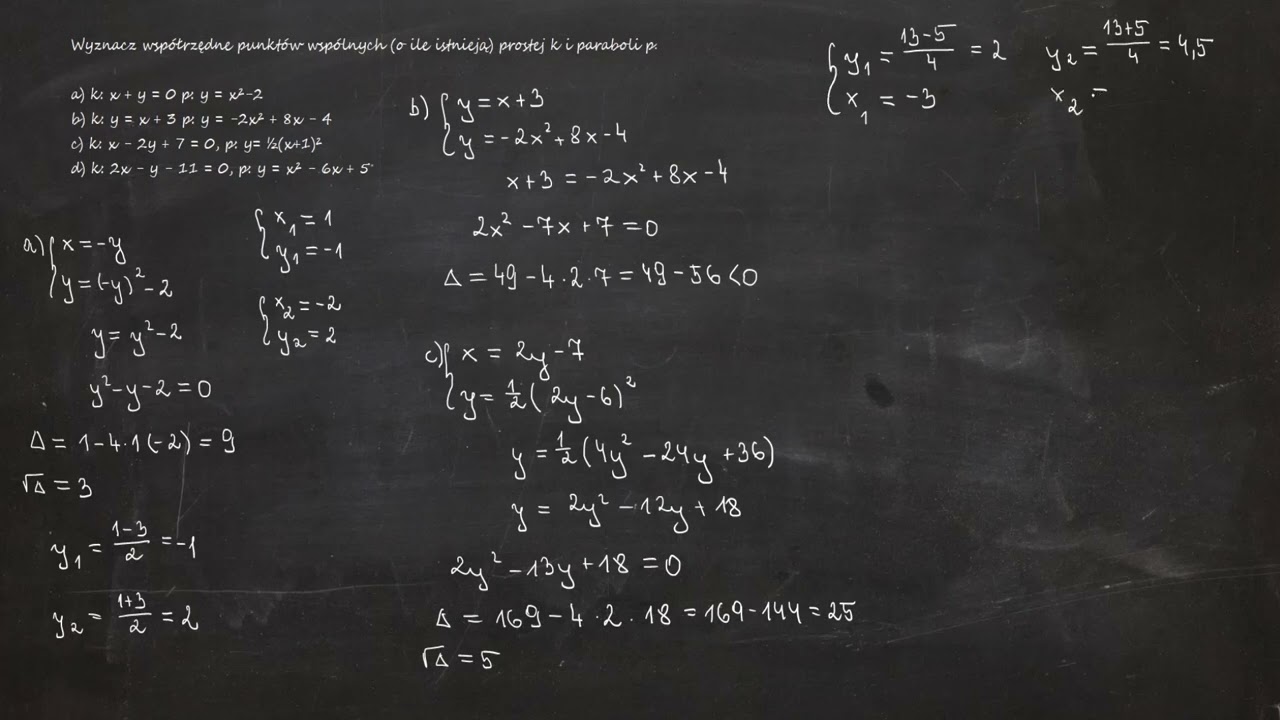 Wyznacz współrzędne punktów wspólnych (o ile istnieją) prostej k i paraboli p.
a) k: x + y = 0 p: y = x²-2
b) k: y = x + 3 p: y = -2x² + 8x - 4
c) k: x - 2y + 7 = 0, p: y= ½(x+1)²
d) k: 2x - y - 11 = 0, p: y = x² - 6x + 5
a) x = -y
y = (-y)² - 2
y = y² - 2
y² - y - 2 = 0
Δ = 1 - 4·1(-2) = 9
√Δ = 3
y₁ = (1-3)/2 = -1
y₂ = (1+3)/2 = 2
x₁ = 1
y₁ = -1
x₂ = -2
y₂ = 2
b) y = x + 3
y = -2x² + 8x - 4
x + 3 = -2x² + 8x - 4
2x² - 7x + 7 = 0
Δ = 49 - 4·2·7 = 49 - 56 < 0
c) x = 2y - 7
y = ½(2y - 6)²
y = ½(4y² - 24y + 36)
y = 2y² - 12y + 18
2y² - 13y + 18 = 0
Δ = 169 - 4·2·18 = 169 - 144 = 25
√Δ = 5
y₁ = (13-5)/4 = 2
x₁ = -3
y₂ = (13+5)/4 = 4,5
x₂ =